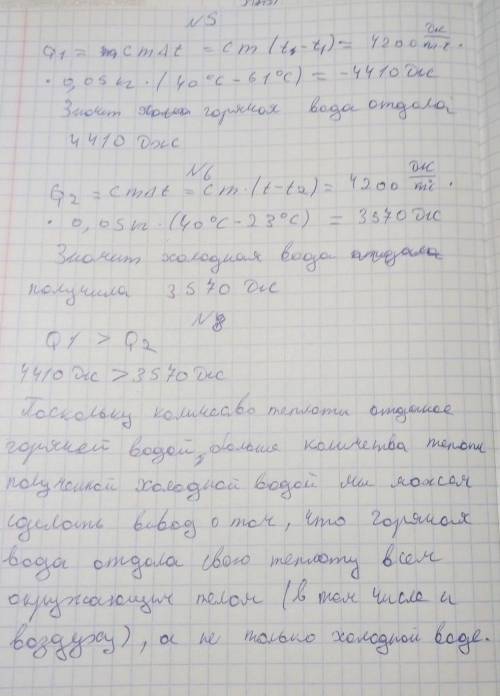 №5
Q1 = cmΔt = cm(t - t1) = 4200 Дж/
· 0,05 кг · (40°C - 61°C) = -4410 Дж
Значит горячая вода отдала
4410 Дж
№6
Q2 = cmΔt = cm · (t - t2) = 4200 Дж/
· 0,05 кг · (40°C - 23°C) = 3570 Дж
Значит холодная вода отдала
получила 3570 Дж
№8
Q1 > Q2
4410 Дж > 3570 Дж
Поскольку количесво теплоти отданное
горячей водой, больше количества теплоти
полученной холодной водой ми можем
сделать вивод о том, что горячая
вода отдала свою теплоту всем
окружающим телам (в том числе и
воздуху), а не только холодной воде.